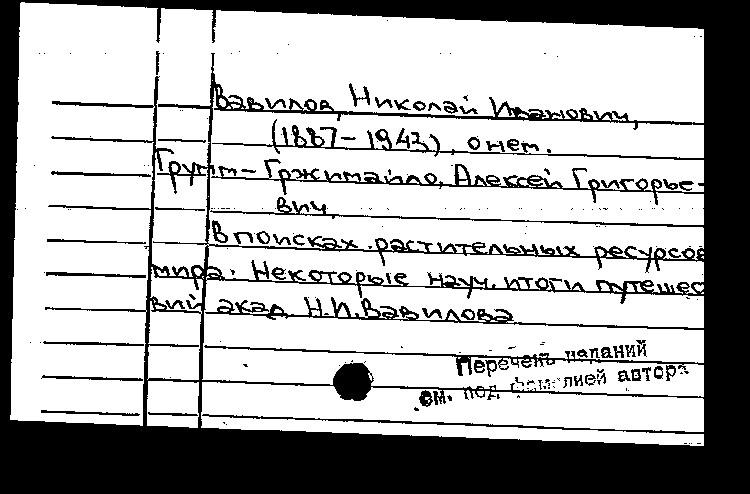 Вавилов, Николай Иванович,
(1887-1943), о нем.
Грумм-Гржимайло, Алексей Григорье-
вич,
В поисках растительных ресурсов
мира. Некоторые науч. итоги путешес
вий акад. Н.И.Вавилова
Перечень изданий
см. под фамилией автора